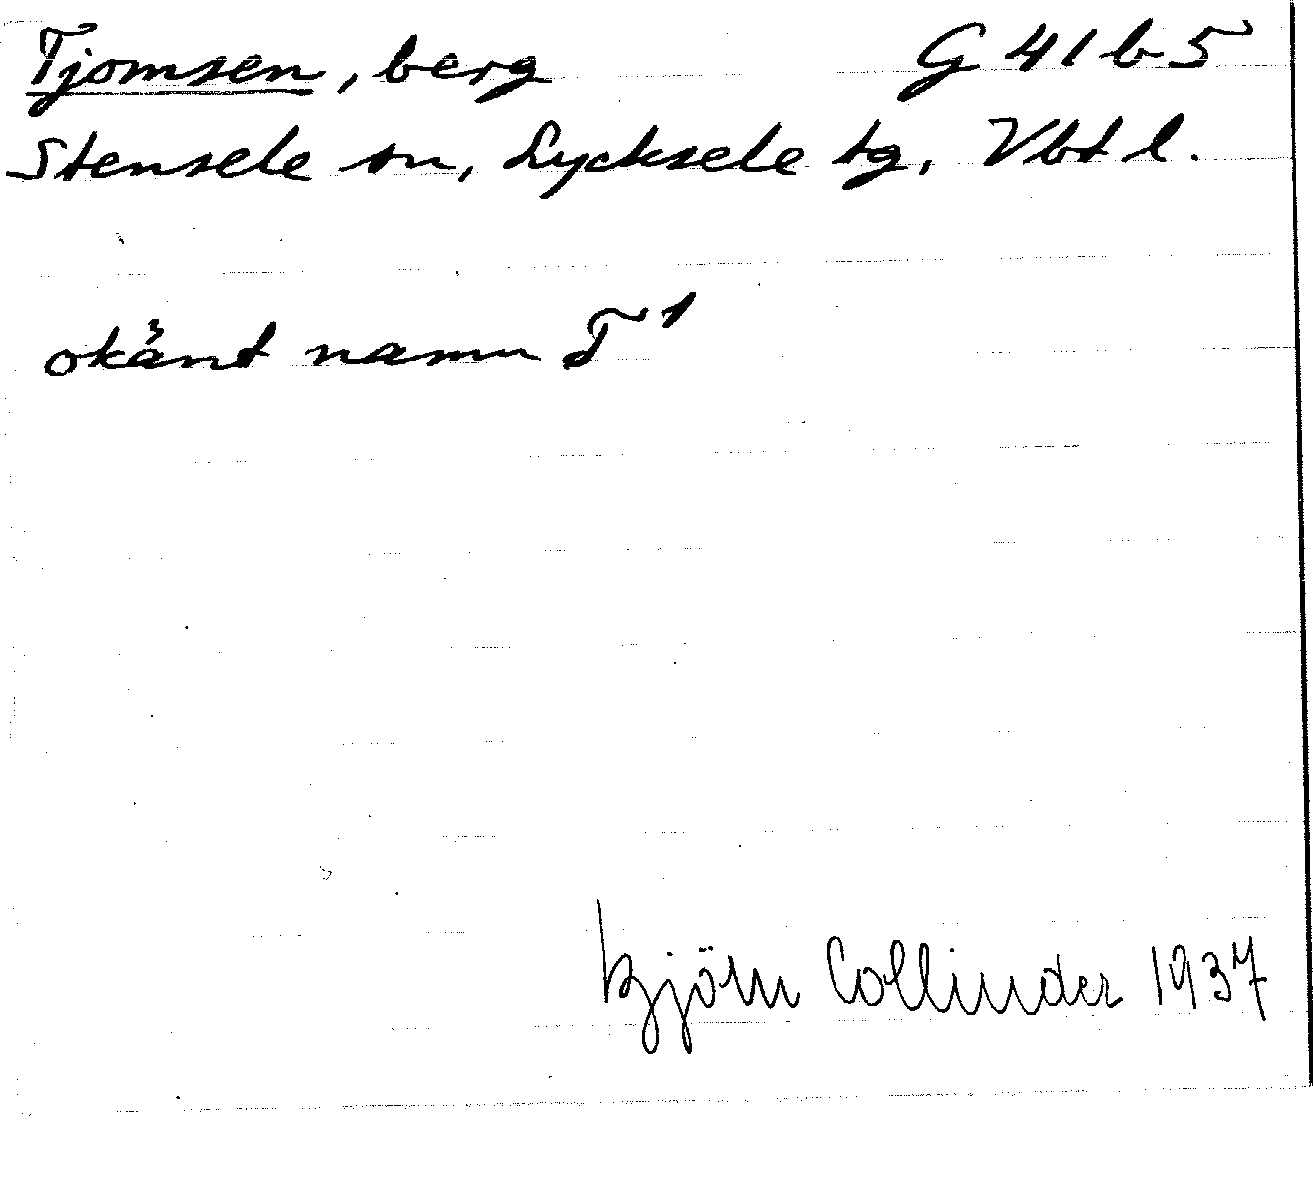 Tjomsen, berg G 41 b 5
Stensele sn, Lycksele tg, Vbt l.
okänt namn T¹
Björn Collinder 1937